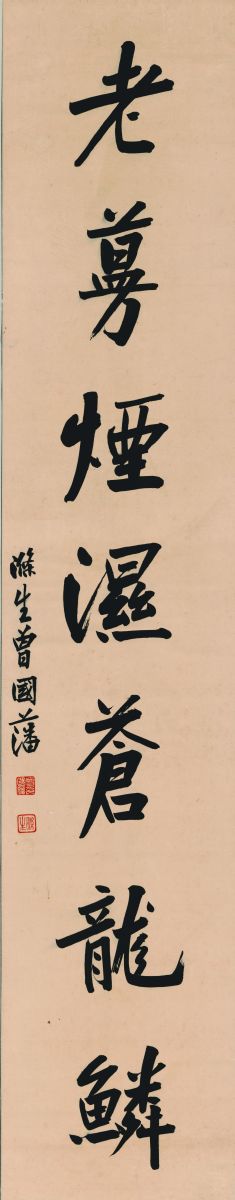 老蔓煙濕蒼龍鱗
滌生曾國藩